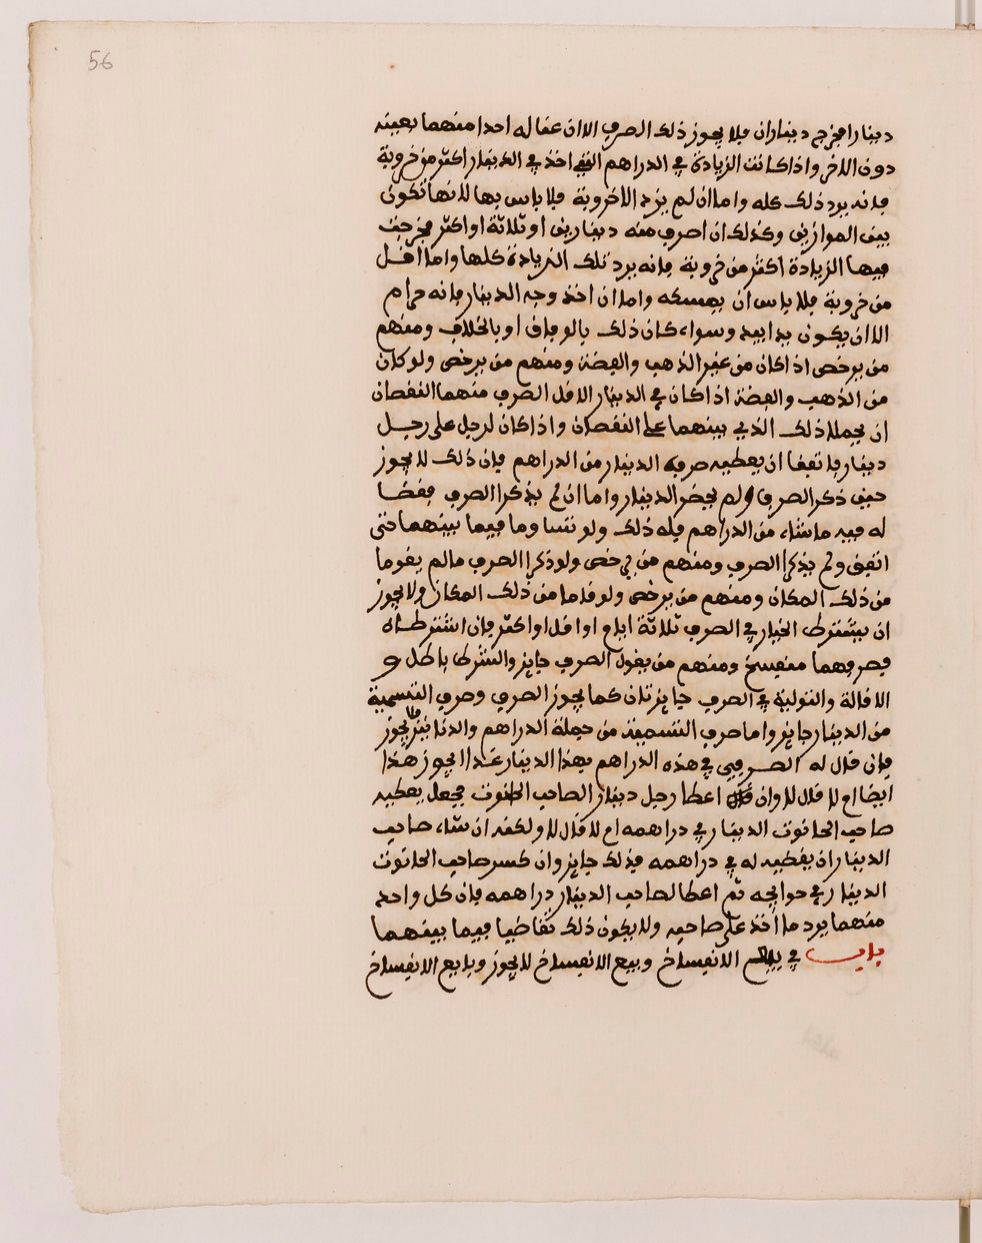 56
دينارا فخرج ديناران فلا يجوز ذلك الصرف الا ان عنا له احدا منهما بعينه
دون الاخر واذا كانت الزيادة في الدراهم التي اخذ في الدينار اكثر من خروبة
فانه يرد ذلك كله واما ان لم يزد الا خروبة فلا باس بها لانها تكون
بين الموازين وكذلك ان اصرف منه دينارين او ثلاثة او اكثر فخرجت
فيها الزيادة اكثر من خروبة فانه يرد تلك الزيادة كلها واما اقل
من خروبة فلا باس ان يمسكه واما ان اخذ وجه الدينار فانه حرام
الا ان يكون يدا بيد وسواء كان ذلك بالوفاق او بالخلاف ومنهم
من يرخص اذا كان من غير الذهب والفضة ومنهم من يرخص ولو كان
من الذهب والفضة اذا كان في الدينار الاقل الصرف منهما النقصان
ان يجعلا ذلك الذي بينهما على النقصان واذا كان لرجل على رجل
دينار فاتفقا ان يعطيه صرف الدينار من الدراهم فان ذلك لا يجوز
حين ذكر الصرف ولم يحضر الدينار واما ان لم يذكرا الصرف فقضا
له فيه ما شاء من الدراهم فله ذلك ولو تساوما فيما بينهما حتى
اتفق ولم يذكرا الصرف ومنهم من يرخص ولو ذكرا الصرف مالم يقوما
من ذلك المكان ومنهم من يرخص ولو قاما من ذلك المكان ولا يجوز
ان يشترط الخيار في الصرف ثلاثة ايام او اقل او اكثر فان اشترطاه
فصرفهما منفسخ ومنهم من يقول الصرف جايز والشرط باطل و
الاقالة والتولية في الصرف جايزتان كما يجوز الصرف وصرف التسمية
من الدينار جايز واما صرف التسمية من جملة الدراهم والدنانير فلا يجوز
فان قال له الصرفي في هذه الدراهم بهذا الدينار غدا ايجوز هذا
ايضا ام لا قال لا وان اعطا رجل دينار الصاحب الحانوت فجعل يعطيه
صاحب الحانوت الدينار في دراهمه ام لا قال لا ولكنه ان شاء صاحب
الدينار ان يقضيه له في دراهمه فذلك جايز وان كسر صاحب الحانوت
الدينار في حوايجه ثم اعطا لصاحب الدينار دراهمه فان كل واحد
منهما يرد ما اخذ على صاحبه ولا يكون ذلك تقاضيا فيما بينهما
باب في بيع الانفساخ وبيع الانفساخ لا يجوز وبايع الانفساخ